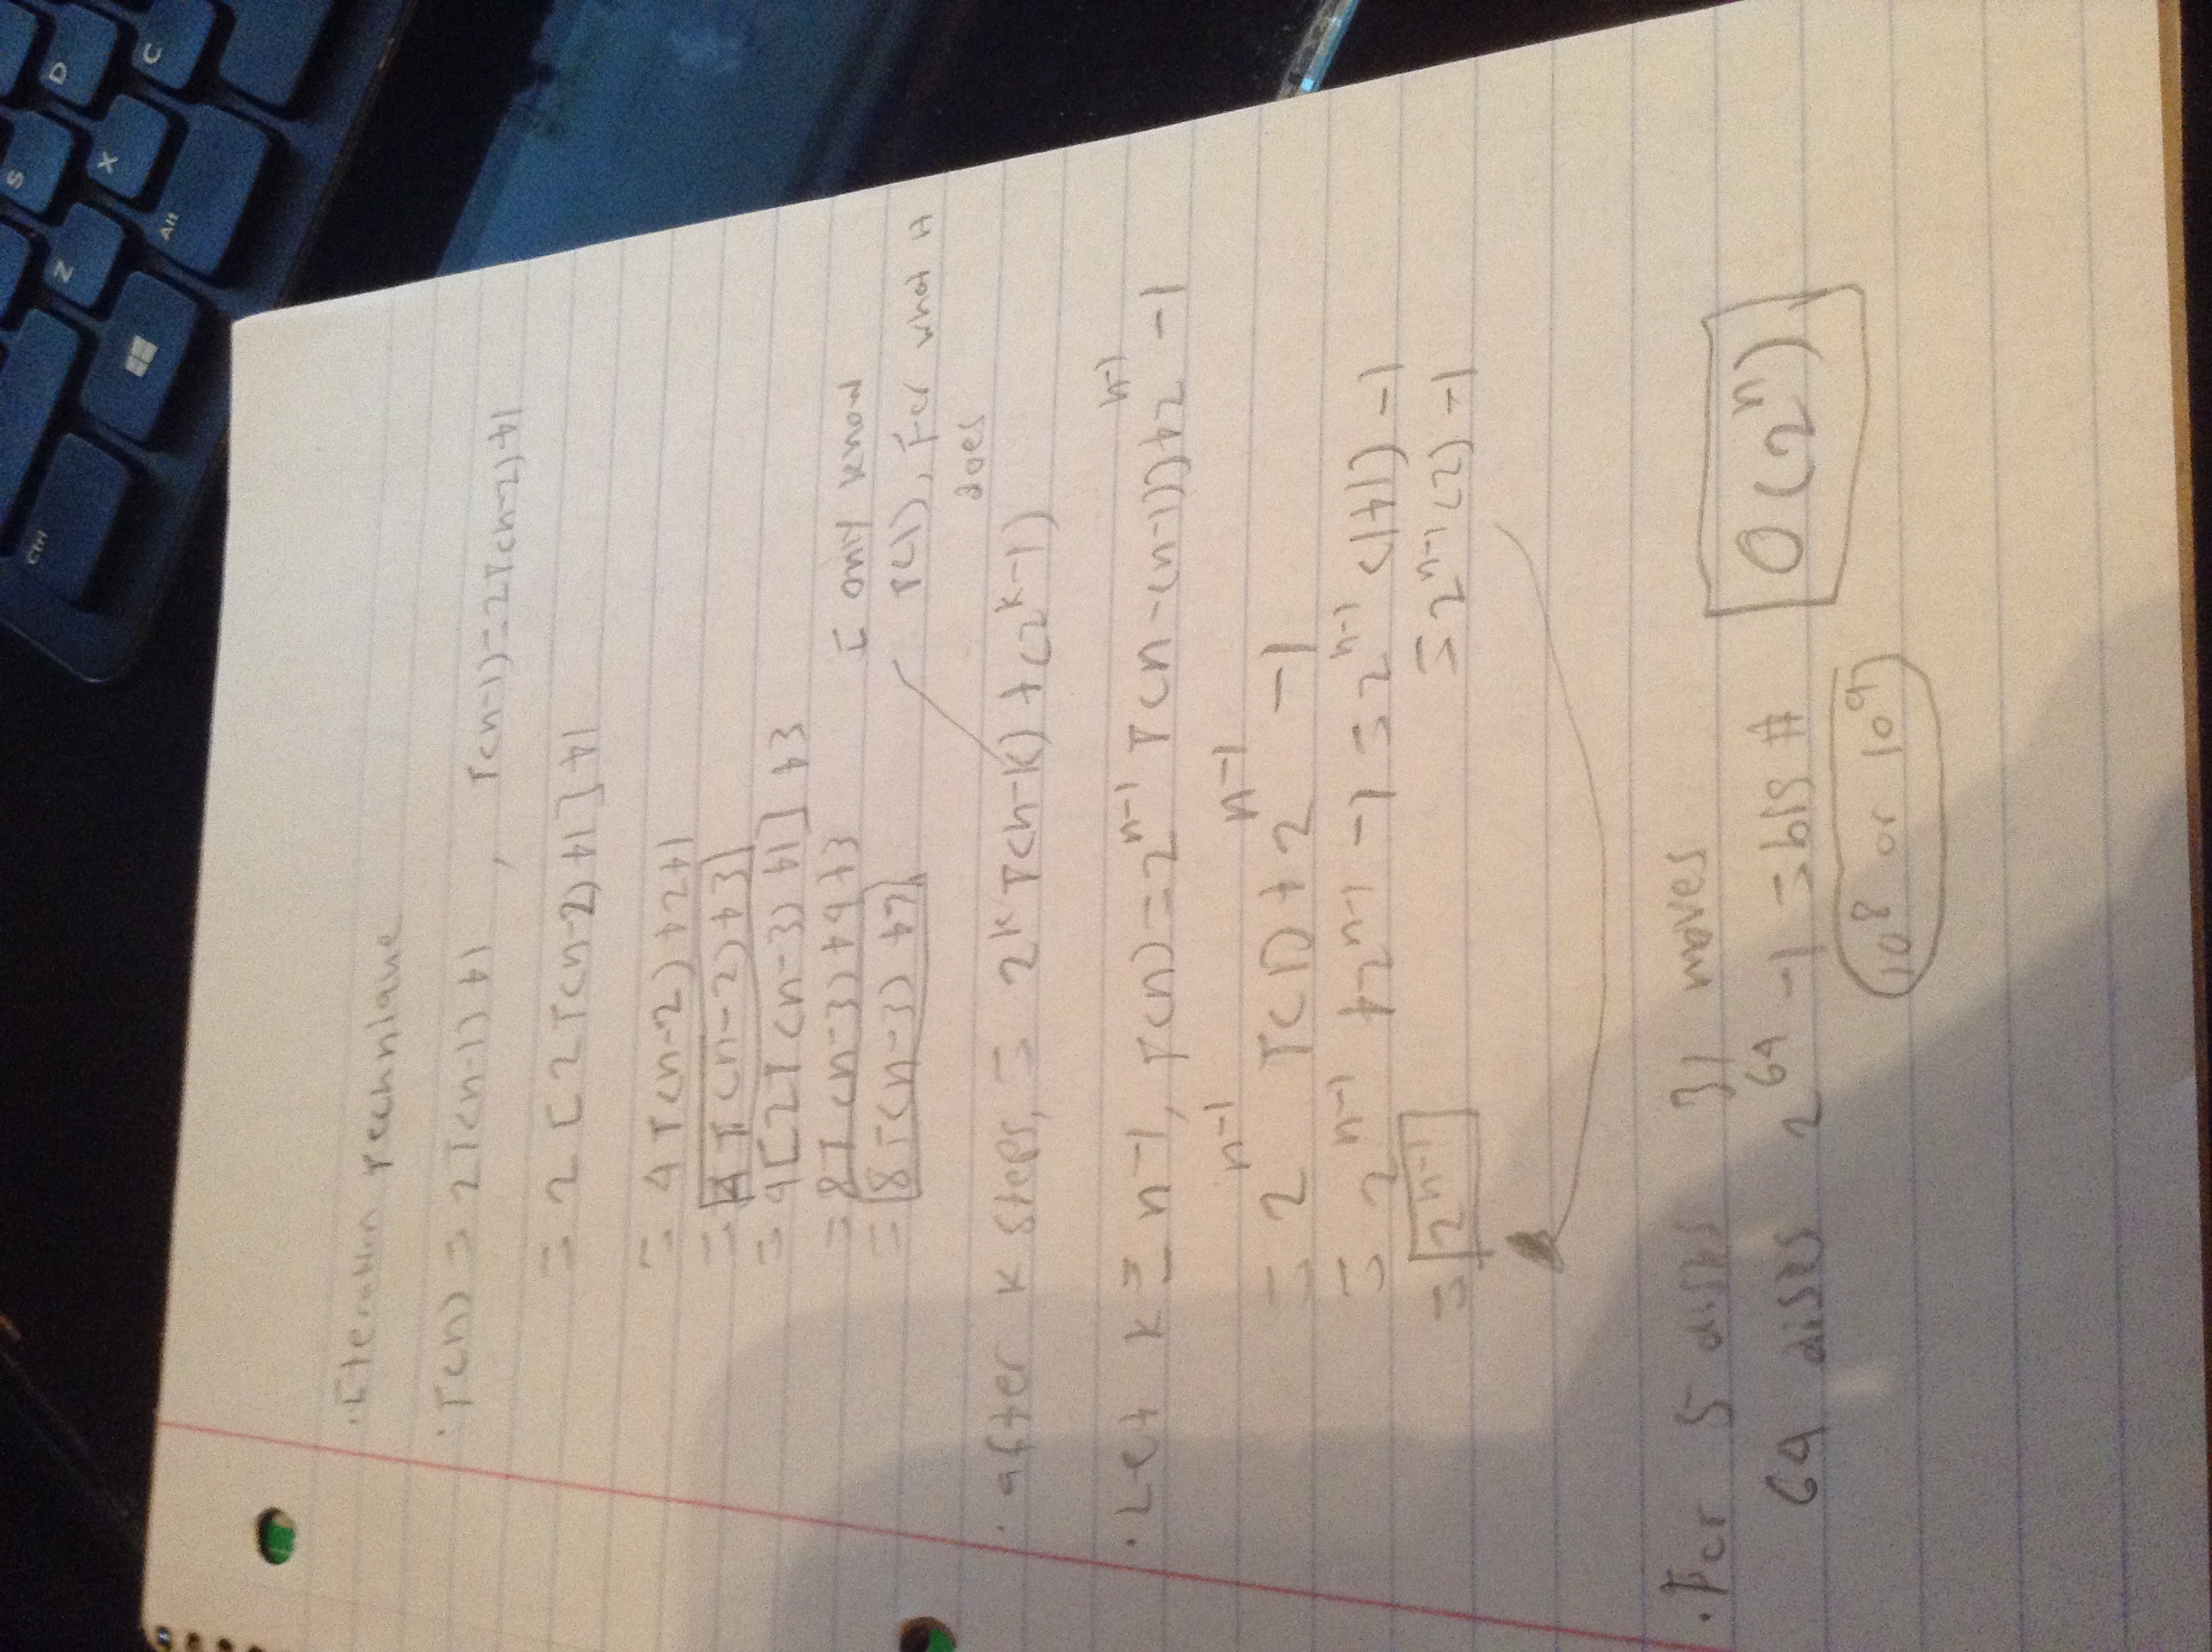 Ctrl
Z
S
X
D
Alt
C
· Iteration Technique
· T(n) = 2T(n-1)+1 , T(n-1)=2T(n-2)+1
= 2[2T(n-2)+1]+1
= 4T(n-2)+2+1
= 4T(n-2)+3
= 4[2T(n-3)+1]+3
= 8T(n-3)+4+3
= 8T(n-3)+7
I only know
T(1), For what it
does
· after k steps, = 2^k T(n-k) + (2^k-1)
· Let k = n-1, T(n) = 2^n-1 T(n-(n-1))+2^n-1 -1
= 2^n-1 T(1) + 2^n-1 -1
= 2^n-1 +2^n-1 -1 = 2^n-1 (1+1) -1
= 2^n-1 = 2^n-1 (2) -1
· For 5 disks 31 moves
64 disks 2^64 -1 = big #
O(2^n)
10^8 or 10^9